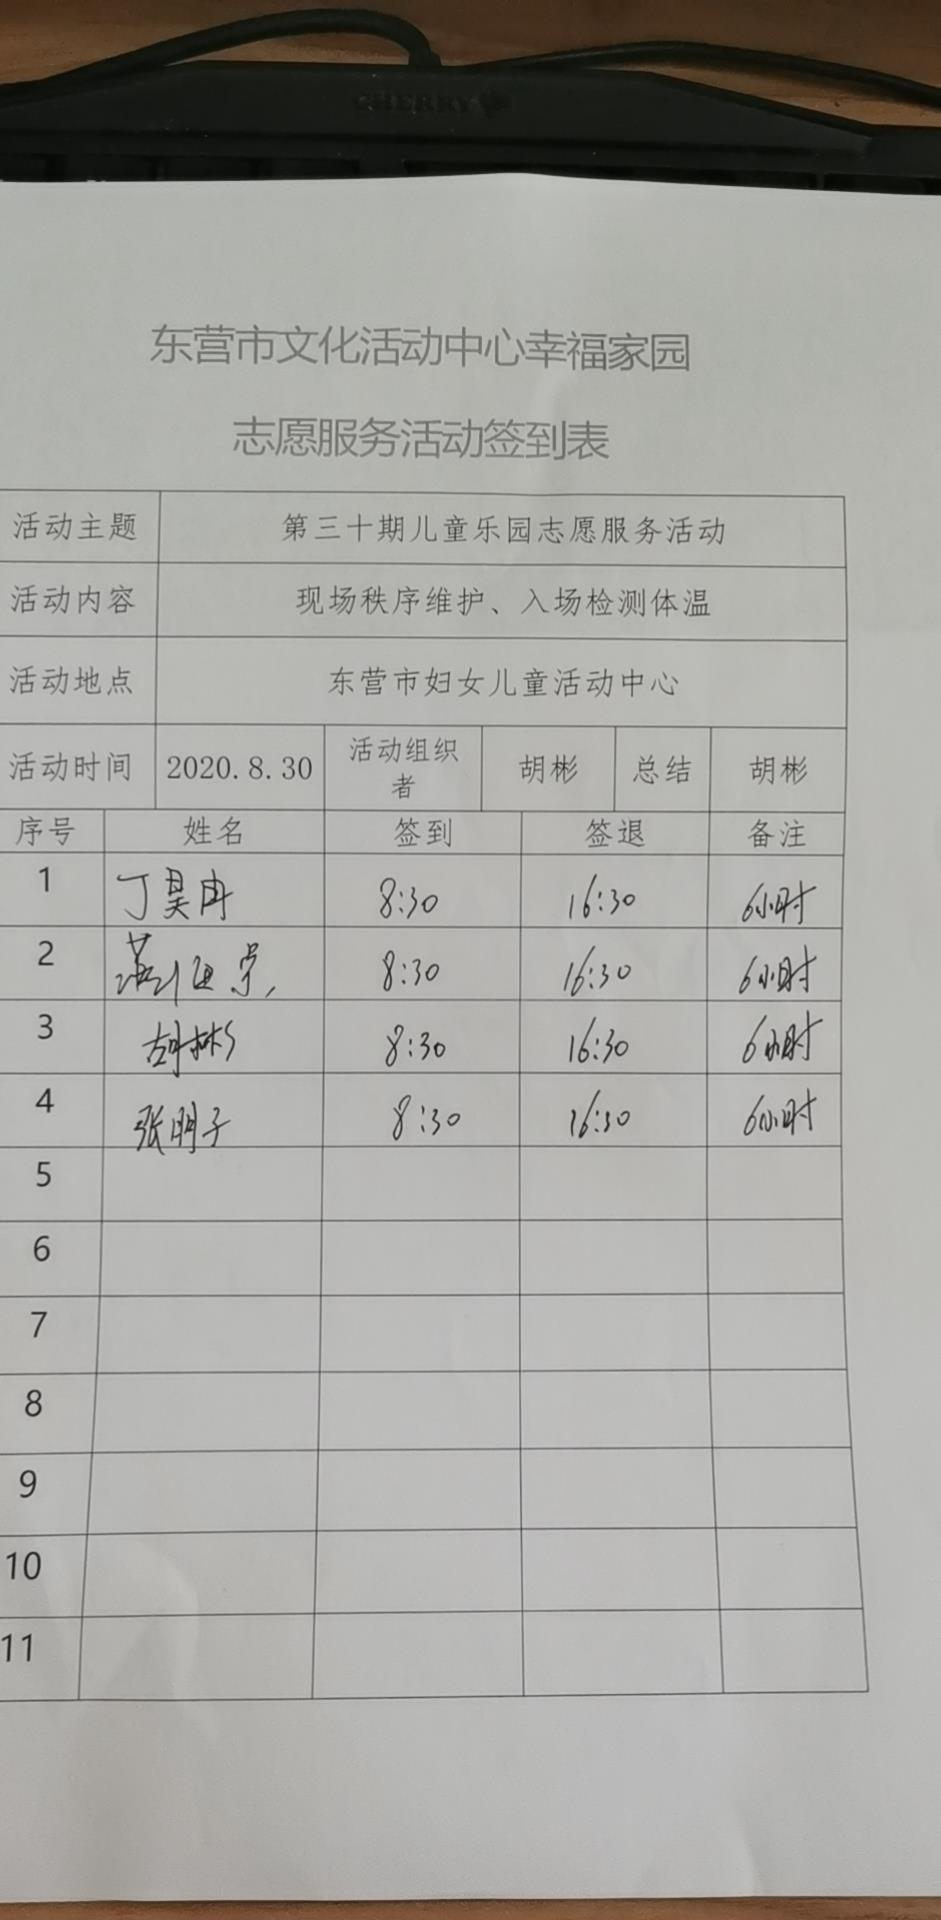 CHERRY
东营市文化活动中心幸福家园
志愿服务活动签到表
活动主题 第三十期儿童乐园志愿服务活动
活动内容 现场秩序维护、入场检测体温
活动地点 东营市妇女儿童活动中心
活动时间 2020.8.30 活动组织者 胡彬 总结 胡彬
序号 姓名 签到 签退 备注
1 丁昊冉 8:30 16:30 6小时
2 8:30 16:30 6小时
3 胡彬 8:30 16:30 6小时
4 张明子 8:30 16:30 6小时
5
6
7
8
9
10
11